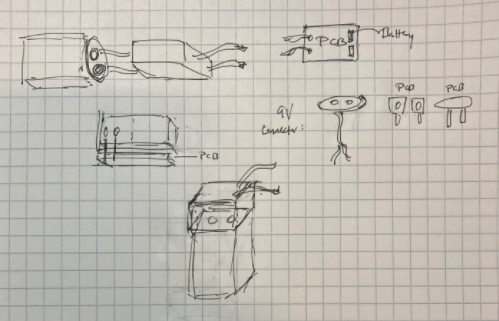 PCB
Battery
9V
Connector:
PCB
PCB
PCB